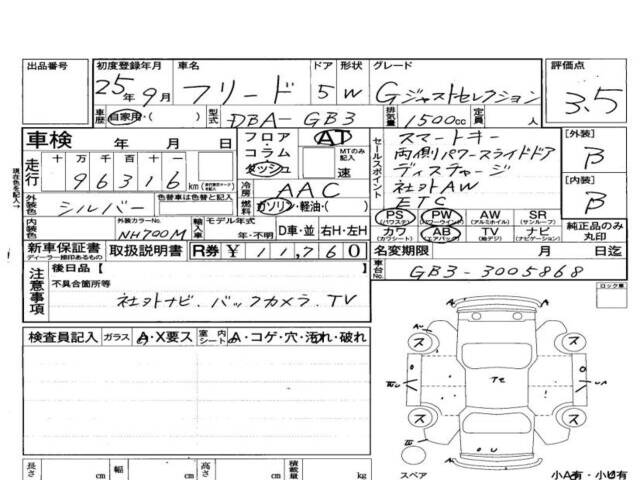 出品番号
初度登録年月 25年9月
車名 フリード
ドア 5
形状 W
グレード Gジャストセレクション
評価点 3.5
車歴 自家用・( )
型式 DBA-GB3
排気量 1500cc
定員 人
車検 年 月 日
走行 十 万 千 百 十 一
96316 km
フロア・コラム・ダッシュ
AT
MTのみ記入
速
冷房 AAC
燃料 ガソリン・軽油・( )
セールスポイント
スマートキー
両側パワースライドドア
ディスチャージ
社外AW
ETC
[外装] B
[内装] B
現在色を記入→
外装色 シルバー
色替車は色替と記入
内装色
外装カラーNo. NH700M
輸入車
モデル年式 年・不明
D車・並
右H・左H
PS (パワステ)
PW (パワーウインド)
AW (アルミホイル)
SR (サンルーフ)
カワ (カワシート)
AB (エアバック)
TV (地デジ)
ナビ (ナビゲーション)
純正品のみ丸印
新車保証書
ディーラー検印あるもの
取扱説明書
R券 ¥11,760
名変期限 月 日迄
車台No. GB3-3005868
注意事項
後日品【
不具合箇所等
社外ナビ.バックカメラ.TV
ロック車
検査員記入
ガラス A・X要ス
室内シート A・コゲ・穴・汚れ・破れ
ス ス
ス ス
スペア
小A有・小U有
長さ cm
幅 cm
高さ cm
積載量 kg